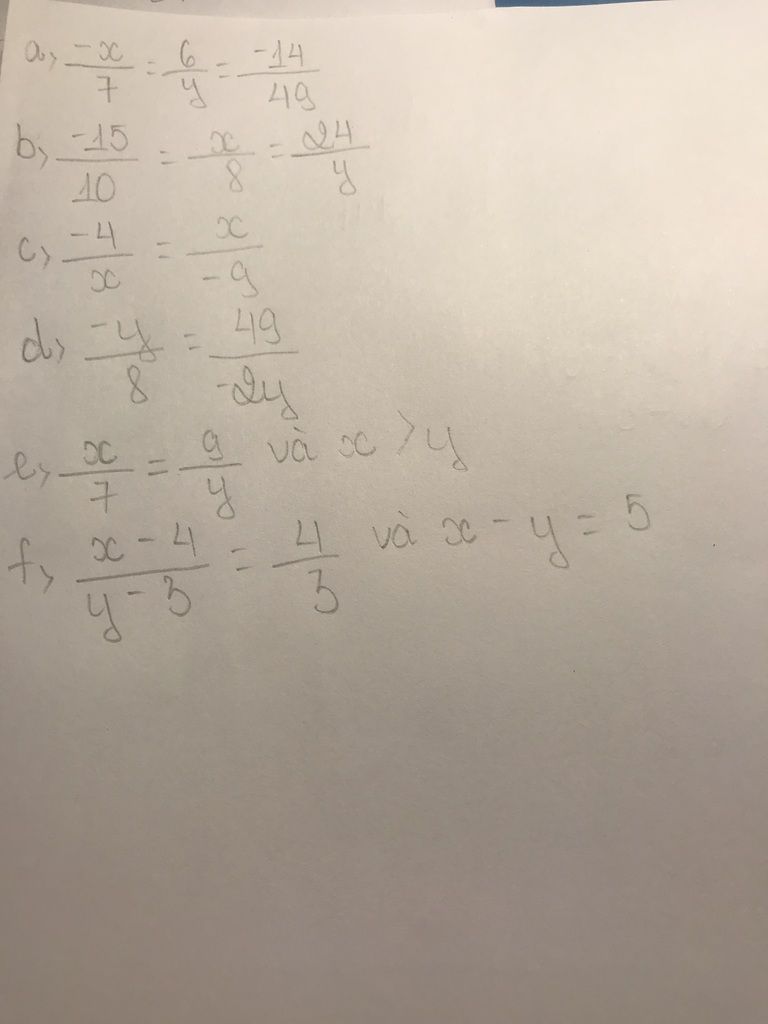 a, -x/7 = 6/y = -14/49
b, -15/10 = x/8 = 24/y
c, -4/x = x/-9
d, -y/8 = 49/-2y
e, x/7 = 9/y và x > y
f, x-4/y-3 = 4/3 và x - y = 5